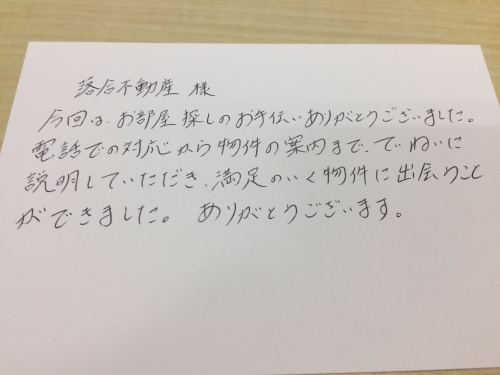 落合不動産 様
今回は、お部屋探しのお手伝いありがとうございました。
電話での対応から物件の案内まで、ていねいに
説明していただき、満足のいく物件に出会うこと
ができました。 ありがとうございます。